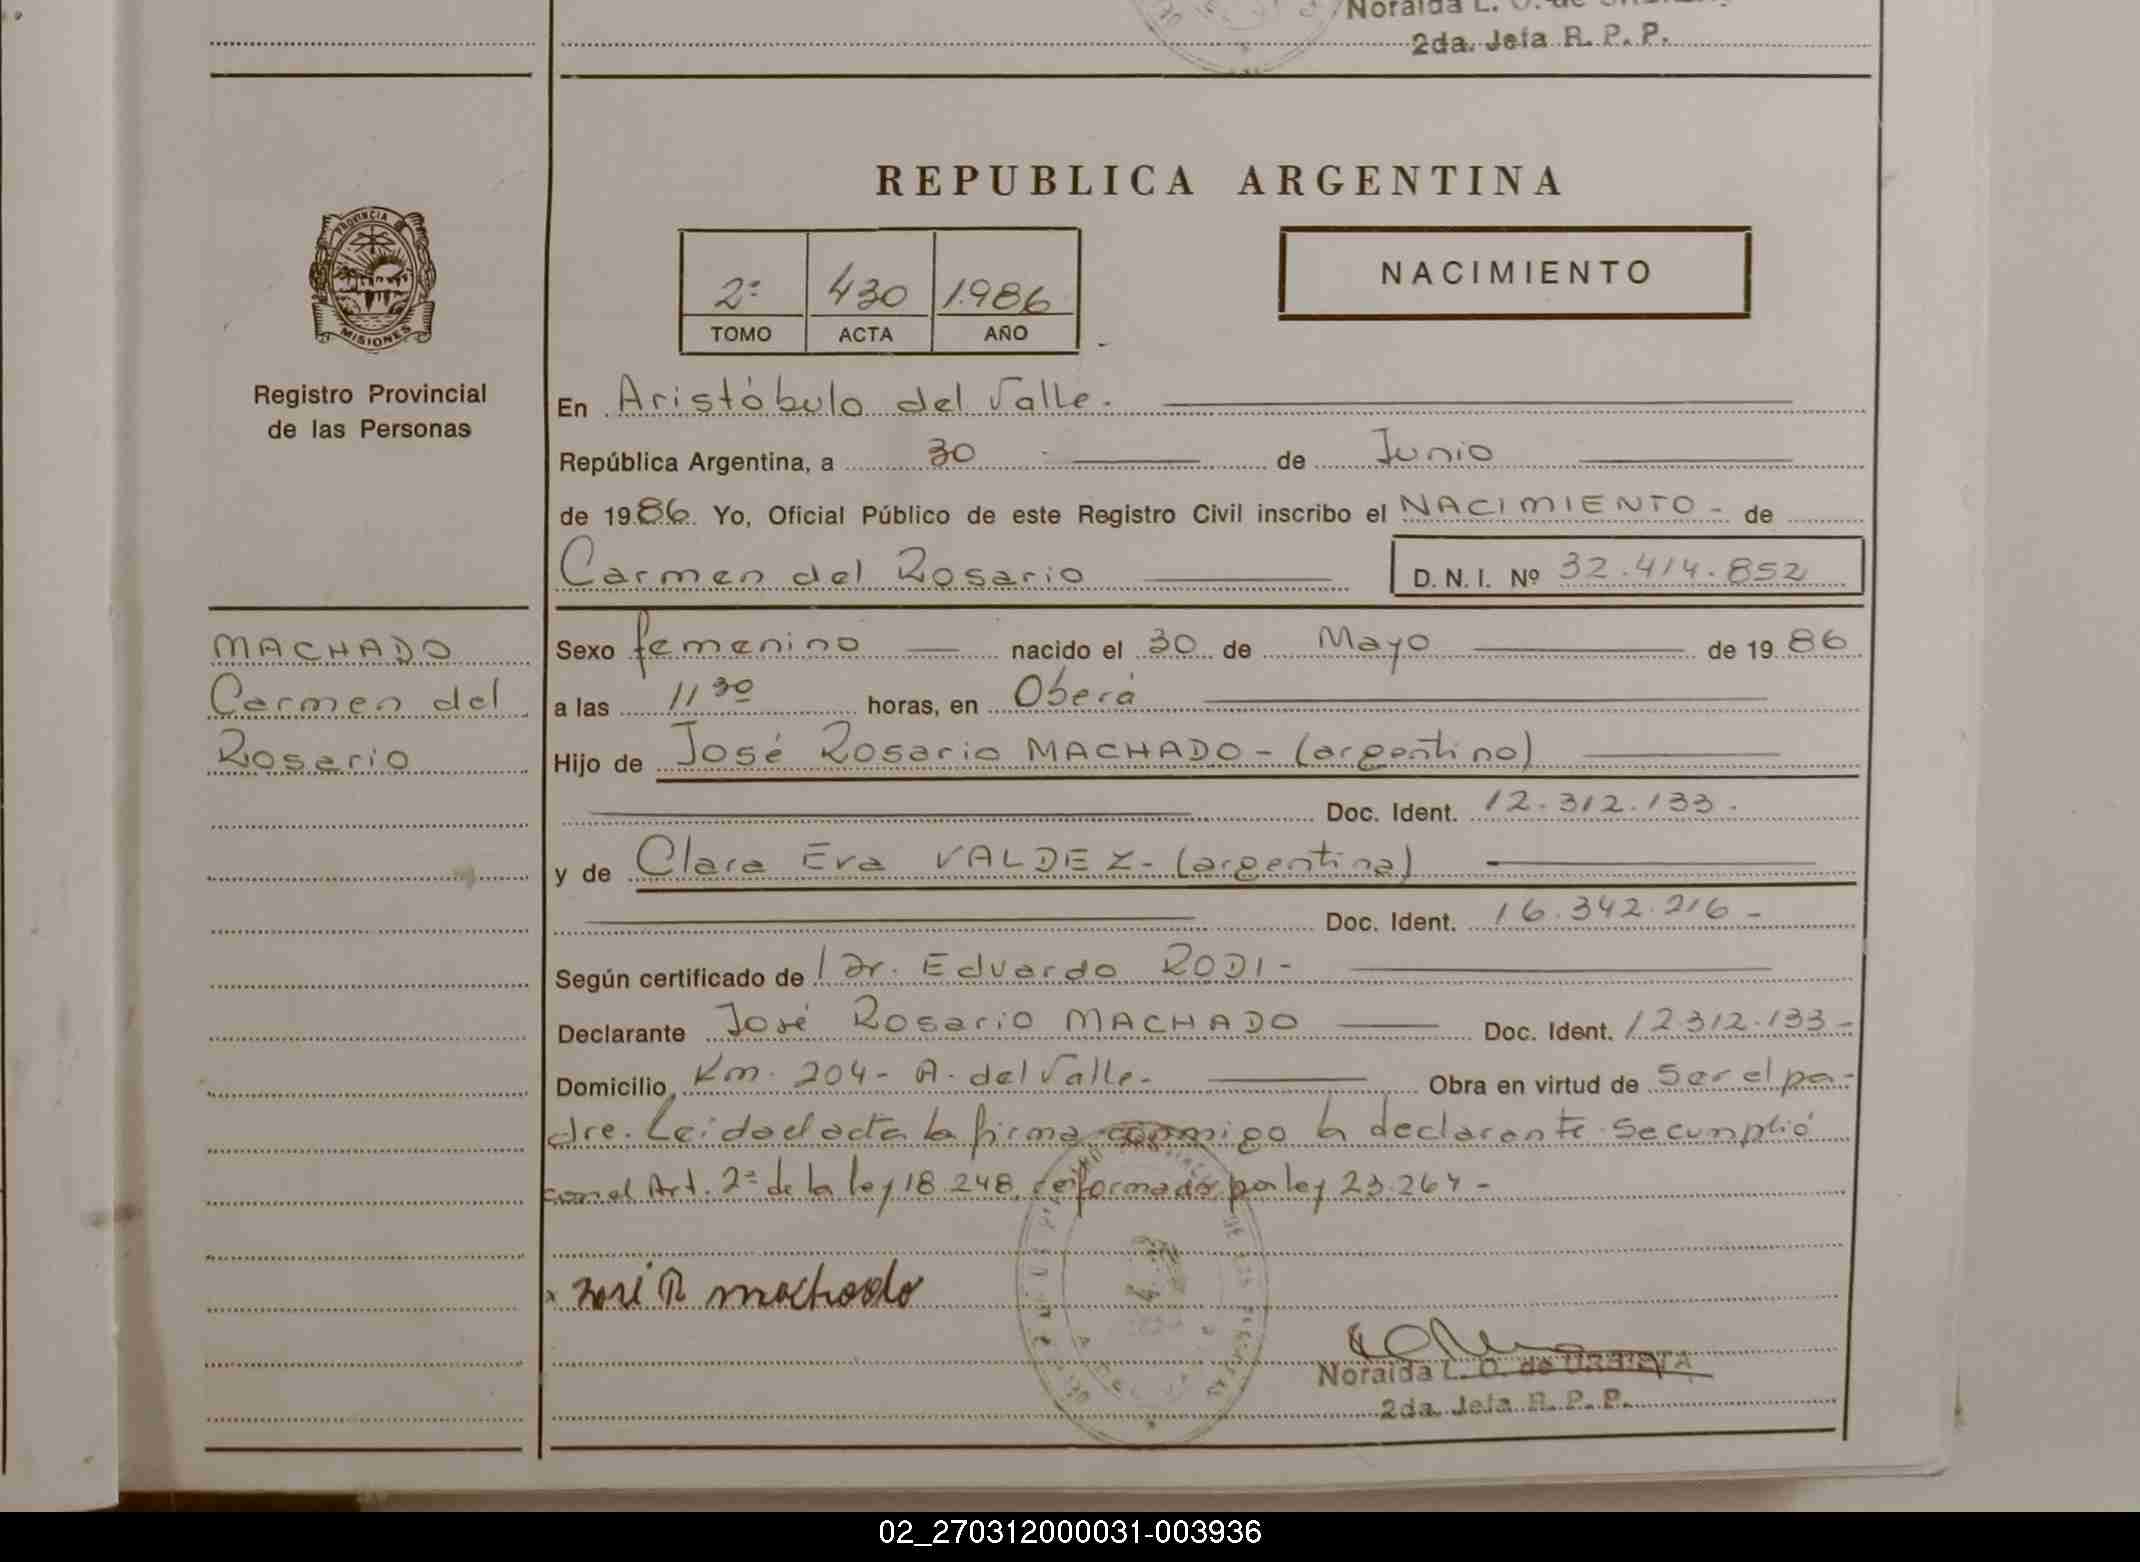 Noraida L. O. de
2da. Jefa R. P. P.
REPUBLICA ARGENTINA
PROVINCIA DE
MISIONES
2º 430 1986
TOMO ACTA AÑO
NACIMIENTO
Registro Provincial
de las Personas
En Aristóbulo del Valle.
República Argentina, a 30 de Junio
de 1986. Yo, Oficial Público de este Registro Civil inscribo el NACIMIENTO - de
Carmen del Rosario D. N. I. Nº 32.414.852
MACHADO
Carmen del
Rosario
Sexo femenino nacido el 30 de Mayo de 1986
a las 11 30 horas, en Oberá
Hijo de José Rosario MACHADO - (argentino)
Doc. Ident. 12.312.133.
y de Clara Eva VALDEZ - (argentina)
Doc. Ident. 16.342.216 -
Según certificado de Dr. Eduardo RODI -
Declarante José Rosario MACHADO Doc. Ident. 12.312.133 -
Domicilio Km. 204 - A. del Valle. - Obra en virtud de Ser el pa-
dre. Leida el acta la firma conmigo la declarante. Se cumplió
con el Art. 2º de la ley 18.248, reformado por ley 23.264 -
x José R machado
Noraida L. O. de
2da. Jefa R. P. P.
02_270312000031-003936